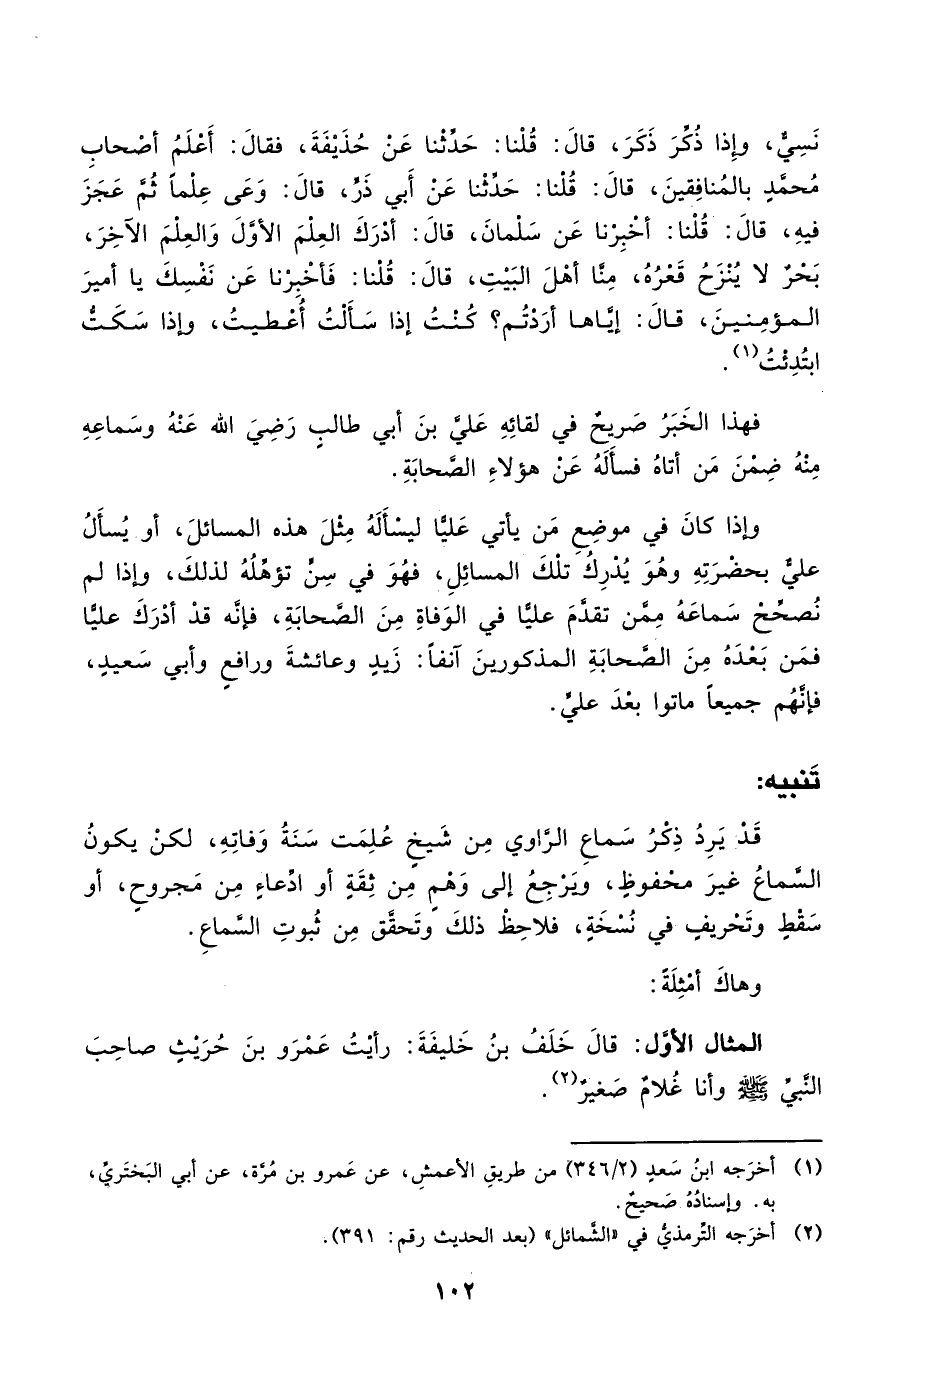 نَسِيٌّ، وإِذا ذُكِّرَ ذَكَرَ، قالَ: قُلْنا: حَدِّثْنا عَنْ حُذَيْفَةَ، فقالَ: أَعْلَمُ أصْحابِ
مُحمَّدٍ بالمُنافِقينَ، قالَ: قُلْنا: حَدِّثْنا عَنْ أَبي ذَرٍّ، قالَ: وَعَى عِلْماً ثُمَّ عَجَزَ
فيهِ، قالَ: قُلْنا: أخْبِرْنا عَن سَلْمانَ، قالَ: أدْرَكَ العِلْمَ الأوَّلَ وَالعِلْمَ الآخِرَ،
بَحْرٌ لا يُنْزَحُ قَعْرُهُ، مِنَّا أهْلَ البَيْتِ، قالَ: قُلْنا: فَأخْبِرْنا عَن نَفْسِكَ يا أميرَ
المؤمِنينَ، قالَ: إيَّاها أرَدْتُم؟ كُنْتُ إذا سَألْتُ أُعْطيتُ، وإذا سَكَتُّ
ابتُدِئْتُ(١).
فهذا الخَبَرُ صَريحٌ في لقائِهِ عَليَّ بنَ أبي طالبٍ رَضِيَ الله عَنْهُ وسَماعِهِ
مِنْهُ ضِمْنَ مَن أتاهُ فسألَهُ عَنْ هؤلاءِ الصَّحابَةِ.
وإذا كانَ في موضِعِ مَن يأتي عَليًّا ليسْألَهُ مِثْلَ هذه المسائلَ، أو يُسألُ
عليٌّ بحضْرَتِهِ وهُوَ يُدْرِكُ تلْكَ المسائلِ، فهُوَ في سِنٍّ تؤهِّلُهُ لذلكَ، وإذا لم
نُصحِّحْ سَماعَهُ مِمَّن تقدَّمَ عليًّا في الوَفاةِ مِنَ الصَّحابَةِ، فإنَّه قدْ أدْرَكَ عليًّا
فمَن بَعْدَهُ مِنَ الصَّحابَةِ المذكورينَ آنفاً: زَيدٍ وعائشةَ ورافعٍ وأبي سَعيدٍ،
فإنَّهُم جميعاً ماتوا بعْدَ عليٍّ.
تَنبيه:
قَدْ يَرِدُ ذِكْرُ سَماعِ الرَّاوي مِن شَيخٍ عُلِمَت سَنَةُ وَفاتِهِ، لكنْ يكونُ
السَّماعُ غيرَ محْفوظٍ، ويَرْجِعُ إلى وَهْمٍ مِن ثِقَةٍ أو ادِّعاءٍ مِن مَجروحٍ، أو
سَقْطٍ وتَحْريفٍ في نُسْخَةٍ، فلاحِظْ ذلكَ وتَحقَّق مِن ثُبوتِ السَّماعِ.
وهاكَ أمْثِلَةً:
المثال الأوَّل: قالَ خَلَفُ بنُ خَليفَةَ: رأيْتُ عَمْرَو بنَ حُرَيْثٍ صاحِبَ
النَّبيِّ ﷺ وأنا غُلامٌ صَغيرٌ(٢).
(١) أخرَجه ابنُ سَعدٍ (٣٤٦/٢) من طريقِ الأعمشِ، عن عَمرو بن مُرَّة، عن أبي البَختَريِّ،
به. وإسنادُهُ صَحيحٌ.
(٢) أخرَجه التِّرمذيُّ في «الشَّمائل» (بعد الحديث رقم: ٣٩١).
١٠٢